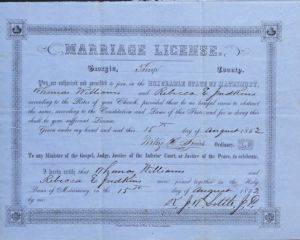 MARRIAGE LICENSE.
Georgia, Troup County.
You are authorized and permitted to join in the HONORABLE STATE OF MATRIMONY,
Thomas Williams and Rebecca E Judkins
according to the Rites of your Church, provided there be no lawful cause to obstruct
the same, according to the Constitution and Laws of this State, and for so doing this
shall be your sufficient License.
Given under my hand and seal this 15th day of August 1862
Ordinary. L.S
To any Minister of the Gospel, Judge, Justice of the Inferior Court, or Justice of the Peace, to celebrate.
I hereby certify that Thomas Williams and
Rebecca E Judkins were joined together in the Holy
Bans of Matrimony, in the 15th day of August 1862
by